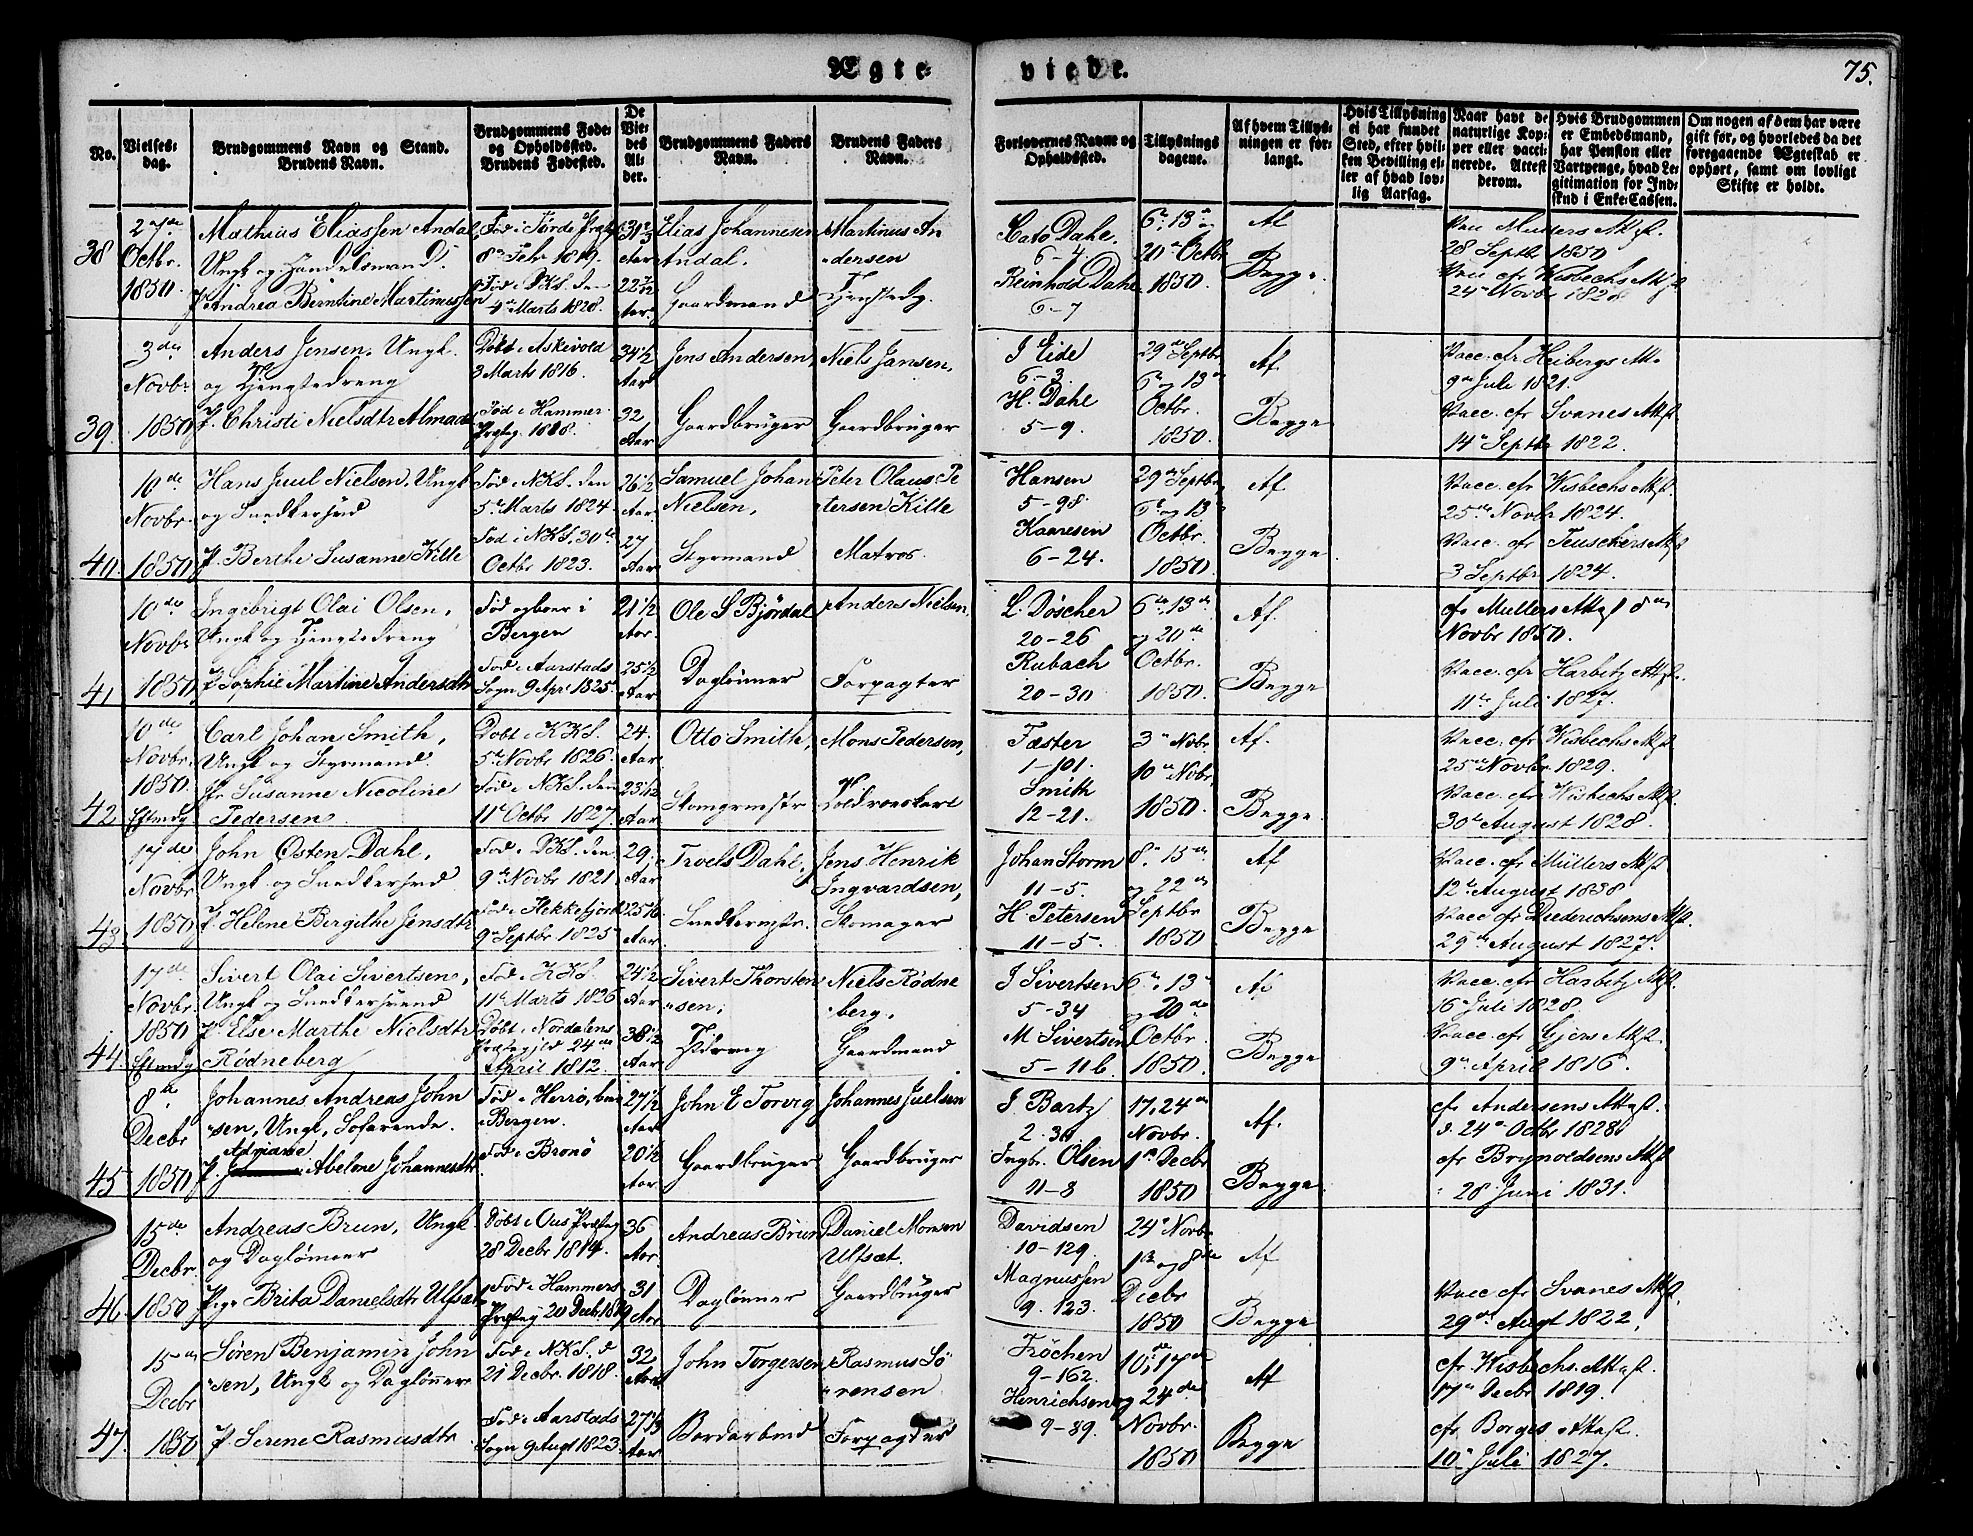 Ægte-
viede.
75.
No.
Vielses-
dag.
Brudgommens Navn og Stand.
Brudens Navn.
Brudgommens Føde-
og Opholdssted.
Brudens Fødested.
De
Vie-
des
Al-
der.
Brudgommens Faders
Navn.
Brudens Faders
Navn.
Forlovernes Navne og
Opholdssted.
Tillysnings
dagene.
Af hvem Tillys-
ningen er for-
langt.
Hvis Tillysning
ei har fundet
Sted, efter hvil-
ken Bevilling el-
ler af hvad lov-
lig Aarsag.
Naar havt de
naturlige Kop-
per eller vacci-
nerede. Attest
derom.
Hvis Brudgommen
er Embedsmand,
har Pension eller
Vartpenge, hvad Le-
gitimation for Ind-
skud i Enke-Cassen.
Om nogen af dem har være
gift før, og hvorledes da det
foregaaende Ægteskab er
ophørt, samt om lovligt
Skifte er holdt.
38
27de
Octbr.
1850.
Mathias Eliassen Andal
Ungk og Handelsmand.
P. Andrea Berntine Martinussen
Fød i Førde Præstg
8de Febr 1819.
Fød i DKS. den
4de Marts 1828.
31 2/3
Aar
22 7/12
Aar.
Elias Johannesen
Andal.
Gaardmand
Martinus An
dersen
Tjenstedg.
Cato Dahl.
6-4
Reinhold Dahl
6-7
6te 13de
20de Octbr
1850.
Af
Begge.
Vacc Mullers Attest.
28 Septbr 1850
Vacc cfr Wisbechs Attest
24de Novbr 1828
39.
3die
Novbr
1850
Anders Jensen, Ungk.
og Tjenstedreng
P. Christi Nielsdtr Almaas
Døbt i Askevold
3 Marts 1816.
Fød i Hammer
Præstg. 1818.
34 1/2
Aar
32
Aar
Jens Andersen,
Gaardbruger
Niels Jansen,
Gaardbruger
J Eide
6-3.
H. Dahl
5-9.
29de Septbr
6te og 13de
Octbr.
1850.
Af.
Begge
Vacc. cfr Heibergs Att.
9de Juli 1821.
Vacc. cfr Svanes Attst
14de Septbr 1822.
40
10de
Novbr.
1850
Hans Juul Nielsen, Ungk
og Snedkersvd
P. Berthe Susanne Kille
Fød i NKS. den
5te Marts 1824.
Fød i NKS. 30te
Octbr 1823.
26 1/2
Aar.
27
Aar
Samuel Johan
Nielsen,
Styrmand
Peter Olaus Pe
tersen Kille
Matros.
Hansen
5-98.
Kaaresen
6-24.
29de Septbr
6te og 13de
Octbr.
1850.
Af
Begge
Vacc. cfr Wisbechs Attst.
25de Novbr 1824.
Vacc. cfr Teuschers Attst
3 Septbr 1824.
41
10de
Novbr
1850
Ingebrigt Olai Olsen,
Ungk og Tjenstedreng
P. Sophie Martine Andersdtr
Fød og boer i
Bergen
Fød i Aarstads
Sogn 9 Apri 1825.
21 1/2
Aar.
25 1/2
Aar
Ole S Bjørdal
Dagleiner
Anders Nielsen,
Forpagter
L. Döscher
20-26
Rubach
20-30
6te, 13de
og 20de
Octbr.
1850.
Af.
Begge
cfr Mullers Attest 8de
Novbr 1850.
Vacc. cfr Harbitz Attst.
11te Juli 1827.
42
10de
Novbr.
1850.
Eftmdg
Carl Johan Smith,
Ungk og Styrmand.
Jfr Susanne Nicoline
Pedersen.
Døbt i KKS.
5te Novbr 1826.
Fød i NKS. den
11te Octbr 1827.
24.
Aar.
23 1/2
Aar
Otto Smith,
Mons Pedersen,
Fæster
1-101.
Smith
12-21.
3de Novbr
10de Novbr
1850.
Af.
Begge
Vacc. cfr Wisbechs Attst
25de Novbr 1829.
Vacc. cfr Wisbechs Attst.
30te August 1828.
43
17de
Novbr
1850
John Østen Dahl,
Ungk. og Snedkersvd
P. Helene Bergithe Jensdtr
Fød i DKS. den
9de Novbr 1821
Fød i Flekkefjord
9de Septbr 1825
29.
Aar.
25 1/6
Aar.
Troels Dahl,
Snedkermstr.
Jens Henrik
Ingvardsen,
Skomager
Johan Storm
11-5.
H. Petersen
11-5.
8de 15de
og 22de
Septbr
1850
Af
Begge
Vacc. cfr Müllers Attst
12te August 1838.
Vacc cfr Diederichsens Attst.
29de August 1827.
44
17de
Novbr.
1850
Eftmdg
Sivert Olai Sivertsen,
Ungk og Snedkersvend
P. Else Marthe Nielsdtr
Rødneberg
Fød i KKS.
11te Marts 1826
Døbt i Nordalens
Præstegjeld 24de
April 1812.
24 1/2
Aar
38 1/2
Aar.
Sivert Thorsten
sen,
Niels Rødne
berg.
Gaardmand
J Sivertsen
5-34
M Sivertsen
5-116.
6te 13de
og 20de
Octbr.
1850.
Af
Begge
Vacc. cfr Harbitz Attst.
16de Juli 1828.
Vacc cfr Gjørs Attst.
9de April 1816.
45
8de
Decbr
1850
Johannes Andreas John
sen, Ungk, Sofarende.
Adriane
P. Abelone Johannesdtr
Fød i Herrø, boer
i Bergen.
Fød i Bronö
27 1/2
Aar
20 1/2
Aar.
John E Torvig
Gaardbruger
Johannes Juelsen
Gaardbruger
J. Bartz
2.30
Ingbr. Olsen
11-8
17, 24de
Novbr.
1ste Decbr
1850
Af.
Begge
cfr Andersens Attst.
d. 24de Octbr 1828.
cfr Brynoldsens Attst
28 Juni 1831.
46
15de
Decbr.
1850
Andreas Brun, Ungk
og Daglønner
Pige Brita Danielsdtr Ulfsæt
Døbt i Ous Præstg
28 Decbr 1814.
Fød i Hammers
Præstegj 20 Decbr 1819
36
Aar.
31
Aar
Andreas Brun
Daglønner
Daniel Monsen
Ulfsæt.
Gaardbruger
Davidsen
10-129.
Magnussen
9.123.
24de Novbr
1ste og 8de
Decbr
1850
Af
Begge
Vacc cfr Svanes Attst.
29de Augt 1822,
47.
15de
Decbr
1850
Søren Benjamin John
sen, Ungk og Daglønner
P Serene Rasmusdtr
Fød i NKS. d
21 Decbr 1818.
Fød i Aarstads
Sogn 9 Augt 1823.
32
Aar
27 1/3
Aar.
John Torgersen
Bordarbmd
Rasmus Sö
rensen
Forpagter
Fröchen
9-162.
Henrichsen
9-89.
10de, 17de
og 24de
Novbr.
1850
Af
Begge
cfr. Wisbechs. Attest.
17de Decbr 1819.
cfr. Borges Attest.
10de Juli 1827.